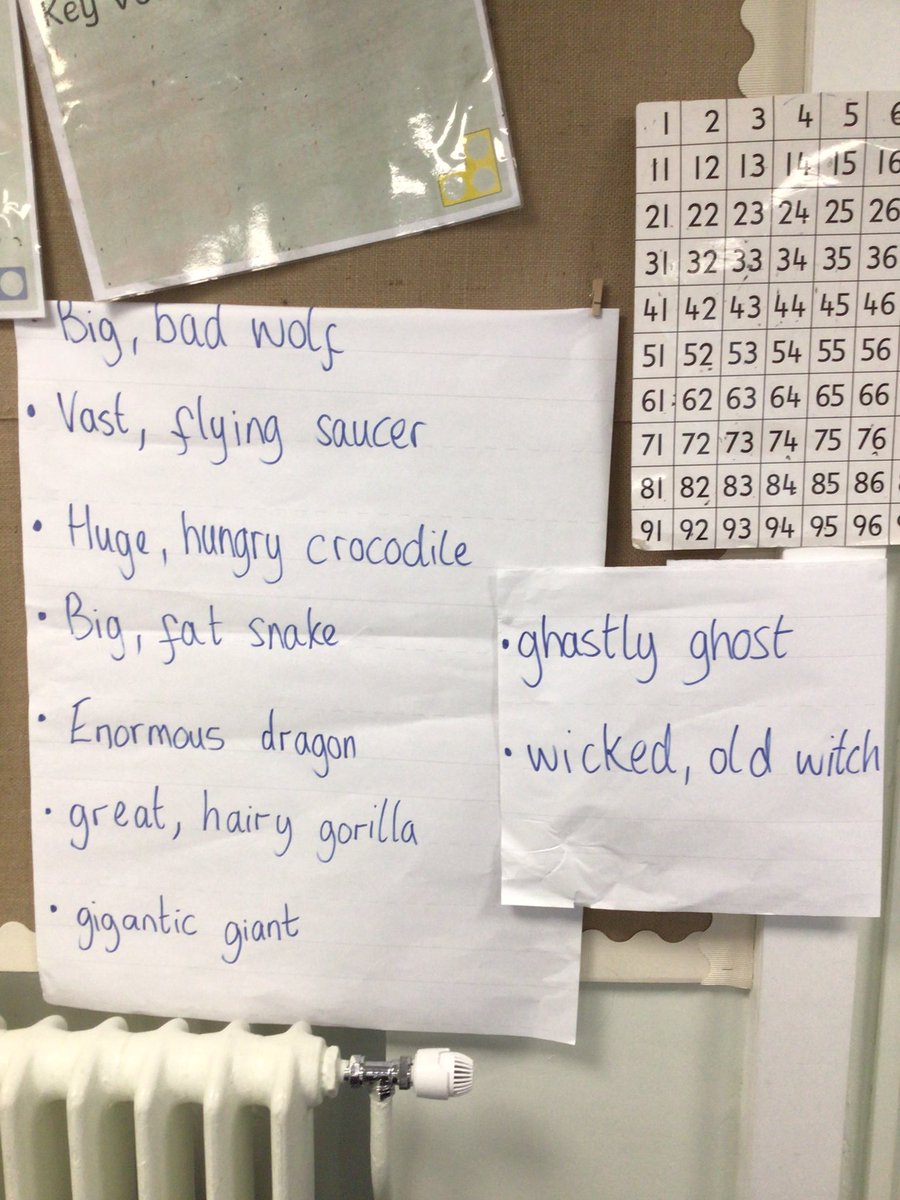 Key
Big, bad wolf
• Vast, flying saucer
• Huge, hungry crocodile
• Big, fat snake
• Enormous dragon
• great, hairy gorilla
• gigantic giant
• ghastly ghost
• wicked, old witch
1 2 3 4 5 6
11 12 13 14 15 16
21 22 23 24 25 26
31 32 33 34 35 36
41 42 43 44 45 46
51 52 53 54 55 56
61 62 63 64 65 66
71 72 73 74 75 76
81 82 83 84 85 86
91 92 93 94 95 96